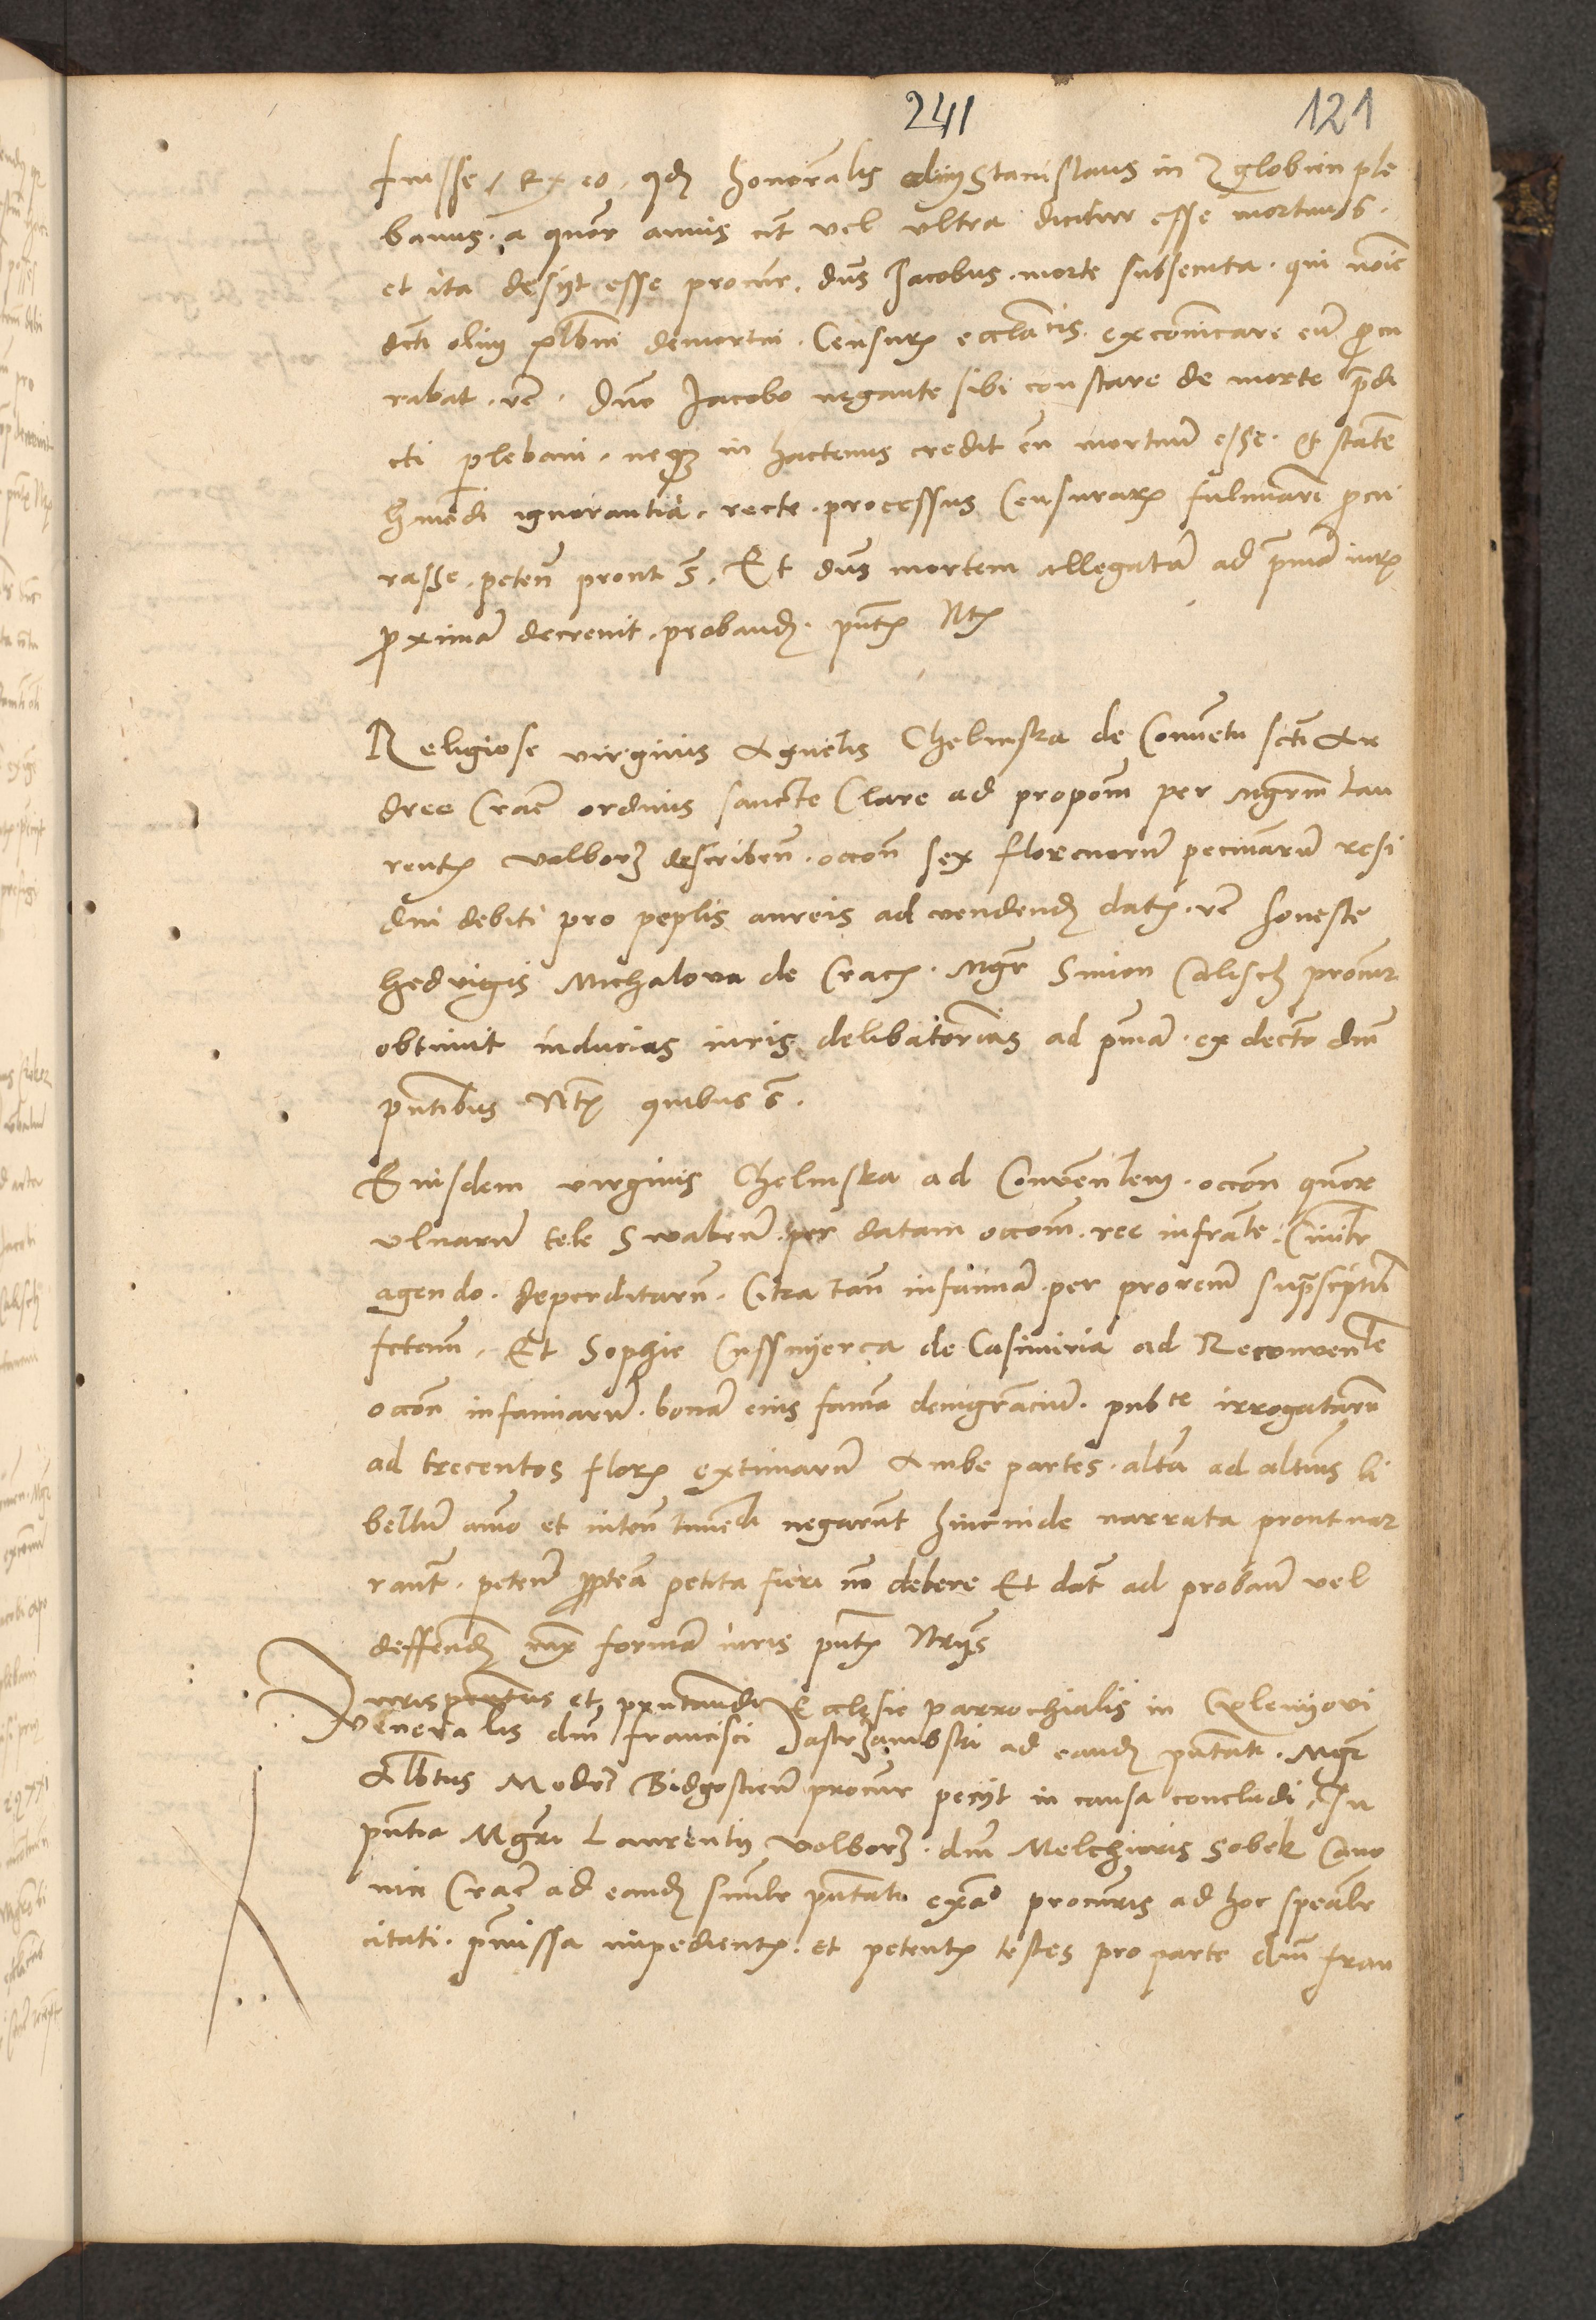 241 121
fuisse, Ex eo, qd honoralis olim Stanislaus in Zglobien ple
banus, a quor annis cit vel ultra dicitur esse mortuus.
et ita desyt esse procur. dns Jacobus. morte subsecuta. qui noie
dcti olim plbni demortui. Censurx ecclaticis. excomicare eum procu
rabat. re. Dno Jacobo negante sibi constare de morte predi
cti plebani. neqz in hactenus credit eu mortuum esse. Et stante
hmodi ignorantia. recte. processus Censurarx fulminari procu
rasse. peten prout s. Et dns mortem allegatam ad primam iurx
proximam decrevit. proband. pntx Ntx
Religiose virginis Agnetis Chelmska de Conventu scti An
dree Crac ordinis sancte Clare ad propom per Mgrm Lau
rentx Volborz describen. occon sex florenorum pecuniarum resi
dui debiti pro peplis aureis ad vendend datx. re honeste
Hedvigis Michalova de Cracx. Mgr Simon Calisch procur
obtinuit inducias iuris deliberatorias ad primam. ex decto dni
pntibus Ntx quibus s.
Eiusdem virginis Chelmska ad Conventem. occon quor
ulnarum tele Swabens per datam occom. ree infrate. Civilr
agendo. deperditarum. Citra tam infamiam. per procrem suprascptum
fctam. Et Sophie Cussnyerca de Casimiria ad Reconvente
occon infamiarum. bonam eius famam denigrancium. publce irrogatarum
ad trecentos florx extimarum Ambe partes. altera ad alterius li
bellum animo et inten negarunt hincinde narrata prout nar
rant. peten propterea petita fieri non debere Et datx ad proband vel
deffend iuxta formam iuris pntx Ntrys
Jurispontus et pntandi Ecclesie parrochialis in
Veneralis dni Francisci Jastrzambski ad eand pntati. Mgr
Albtus Modrz Bidgostien procur pecyt in causa concludi, In
pntia Mgri Laurentii Volborz. dni Melchioris Sobek Cano
nici Crac ad eand similr pntati exa procuris ad hoc spealr
citati. pmissa impedientx. et petentx testes pro parte dni Fran